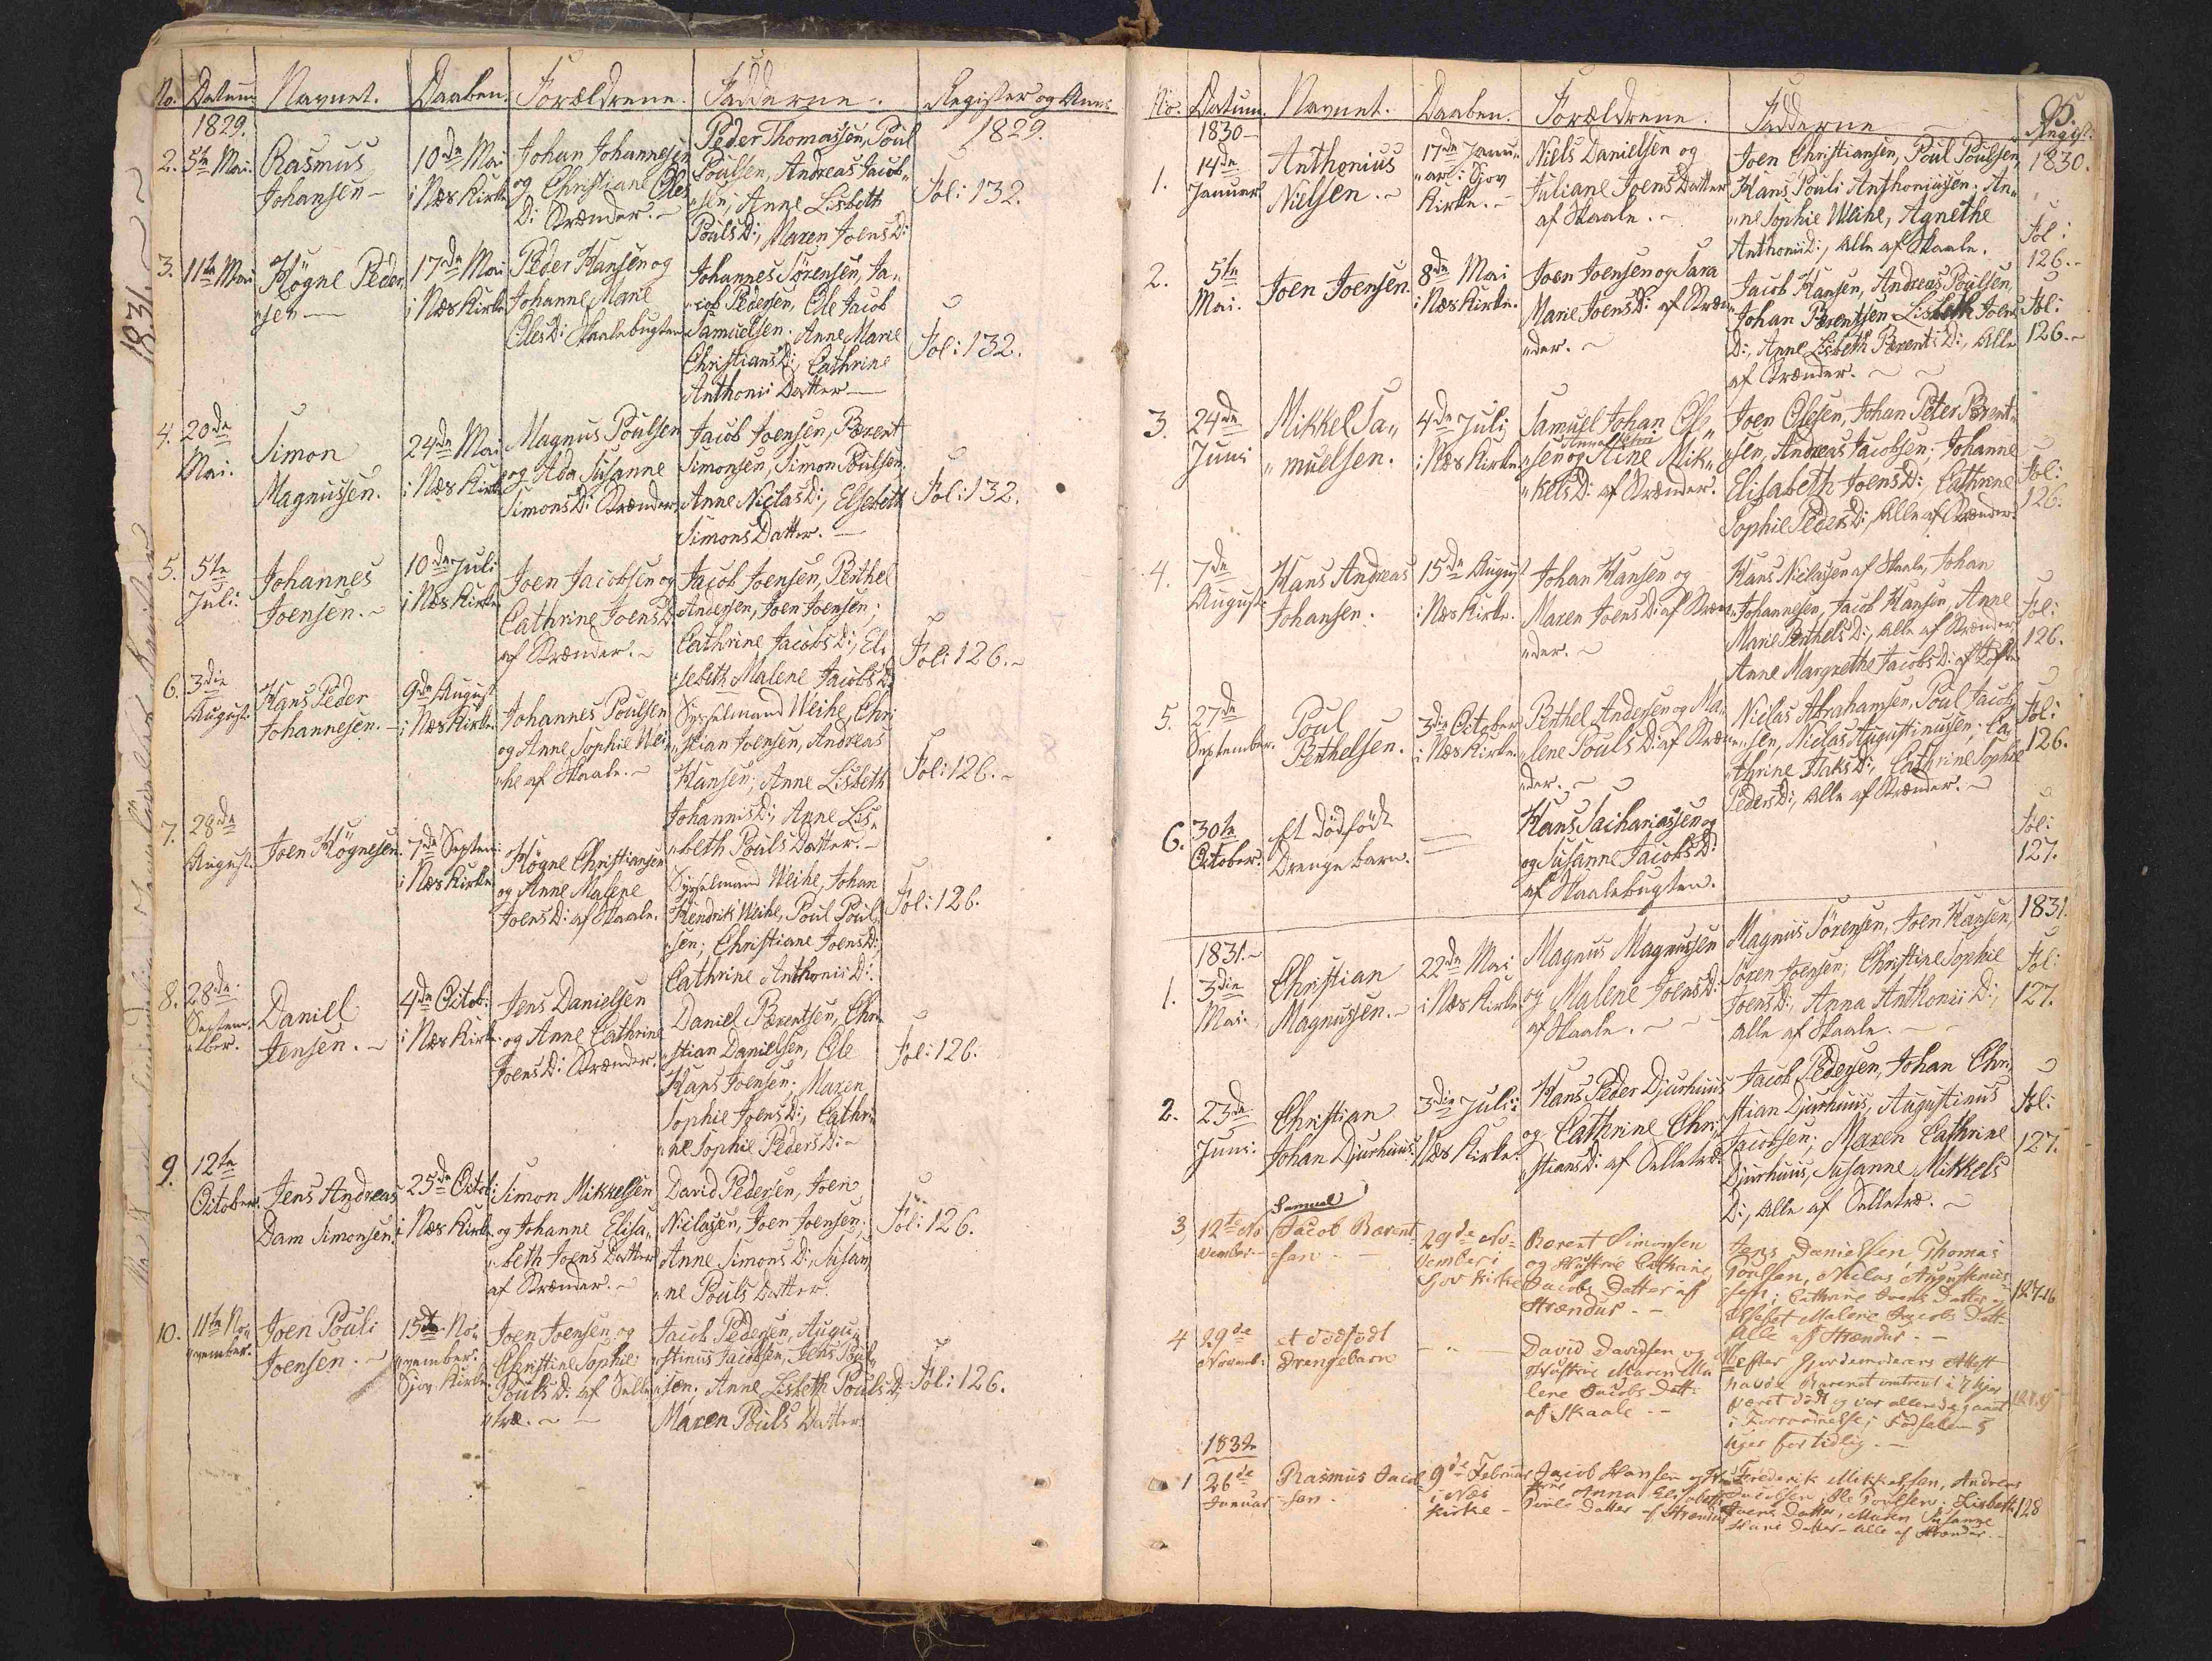 No. Datum. Navnet. Daaben. Forældrene. Fadderne. Register og Anm
1829. 1829.
2. 5te Mai. Rasmus
Johansen
10de Mai
i Næs Kirke
Johan Johannesen
og Christiane Oles
D: Strænder.
Peder Thomassen, Poul
Poulsen, Andreas Jacob„
„sen, Anne Lisbeth
Pouls D:, Maren Joens D:
Fol: 132.
3. 11te Mai
Högne Peder
„sen
17de Mai
i Næs Kirke
Peder Hansen og
Johanne Marie
Oles D: Skaalebugten
Johannes Sörensen, Ja„
„cob Pedersen, Ole Jacob
Samuelsen. Anne Marie
Christians D:, Cathrine
Anthonii Datter
Fol: 132.
4. 20de
Mai.
Simon
Magnussen.
24de Mai
i Næs Kirke
Magnus Poulsen
og Ada Susanne
Simons D: Strænder
Jacob Joensen, Børent
Simonsen, Simon Poulsen,
Anne Niclas D:, Elsebeth
Simons Datter.
Fol: 132.
5. 5te
Juli.
Johannes
Joensen.
10de Juli
i Næs Kirke
Joen Jacobsen og
Cathrine Joens D:
af Strænder.
Jacob Joensen, Berthel
Andersen, Joen Joensen;
Cathrine Jacobs D:, El„
„sebeth Malene Jacobs D:
Fol: 126.
6. 3die
August.
Hans Peder
Johannesen.
9de August
i Næs Kirke
Johannes Poulsen
og Anne Sophie Wei„
„he af Skaale.
Sysselmand Weihe, Chri
„stian Joensen, Andreas
Hansen; Anne Lisbeth
Johannis D:, Anne Lis„
„beth Pouls Datter.
Fol: 126.
7. 28de
August.
Joen Högnesen.
7de Septem:
i Næs Kirke
Högne Christiansen
og Anne Malene
Joens D: af Skaale.
Sysselmand Weihe, Johan
Hendrik Weihe, Poul Poul
„sen; Christiane Joens D:
Cathrine Anthonii D:
Fol: 126.
8. 28de
Septem„
„ber.
Daniel
Jensen.
4de Octob:
i Næs Kirke
Jens Danielsen
og Anne Cathrine
Joens D: Strænder.
Daniel Børentsen, Chri
„stian Danielsen, Ole
Hans Joensen. Maren
Sophie Joens D:, Cathri„
„ne Sophie Peders D:
Fol: 126.
9. 12te
October.
Jens Andreas
Dam Simonsen.
25de Octob:
i Næs Kirke
Simon Mikkelsen
og Johanne Elisa„
„beth Joens Datter
af Strænder.
David Pedersen, Joen
Niclasen, Joen Joensen;
Anne Simons D:, Susan
„ne Pouls Datter.
Fol: 126.
10. 11te No„
„vember.
Joen Pouli
Joensen.
15de No„
„vember.
Sjov Kirke
Joen Joensen og
Christine Sophie
Pouls D: af Selle
„træ.
Jacob Pedersen, Augu„
„stinus Jacobsen, Jens Poul„
„sen; Anne Lisbeth Pouls D:
Maren Pouls Datter
Fol: 126.
1831.
95.
No. Datum. Navnet. Daaben. Forældrene. Fadderne Regist.
1830 1830.
1. 14de
Januar
Anthonius
Nielsen.
17de Janu„
„ar i Sjov
Kirke.
Niels Danielsen og
Juliane Joens Datter
af Skaale.
Joen Christiansen, Poul Poulsen,
Hans Pouli Anthoniussen; An„
„ne Sophie Weihe, Agnethe
Anthonii D:, Alle af Skaale.
Fol:
126.
2. 5te
Mai.
Joen Joensen.
8de Mai
i Næs Kirke.
Joen Joensen og Sara
Marie Joens D: af Stræn„
„der.
Jacob Hansen, Andreas Poulsen,
Johan Børentsen Lisbeth Joens
D:, Anne Lisbeth Børents D:, Alle
af Strænder.
Fol:
126.
3. 24de
Juni
Mikkel Sa„
„muelsen.
4de Juli
i Næs Kirke
Samuel Johan Ole„
„sen og Aine Mik„
„kels D: af Strænder.
Joen Olesen, Johan Peter Børent„
„sen, Andreas Jacobsen; Johanne
Elisabeth Joens D:, Cathrine
Sophie Peders D:, Alle af Strænder.
Fol:
126.
4. 7de
August.
Hans Andreas
Johansen.
15de August
i Næs Kirke.
Johan Hansen og
Maren Joens D: af Stræn„
„der.
Hans Niclasen af Skaale, Johan
Johannesen, Jacob Hansen, Anne
Marie Berthels D:, Alle af Strænder
Anne Margrethe Jacobs D: af
Fol:
126.
5. 27de
September.
Poul
Berthelsen.
3die October
i Næs Kirke.
Berthel Andersen og Ma„
„lene Pouls D: af Stræn„
„der.
Niclas Abrahamsen, Poul Jacob
„sen, Niclas Augustinussen. Ca„
„thrine Isaks D:, Cathrine Sophie
Peders D:, Alle af Strænder.
Fol:
126.
6. 30te
October.
Et dödfödt
Drengebarn.
Hans Sachariassen og
og Susanne Jacobs D:
af Skaalebugten.
Fol:
127.
1831. 1831.
1. 3die
Mai.
Christian
Magnussen.
22de Mai
i Næs Kirke
Magnus Magnussen
og Malene Joens D:
af Skaale.
Magnus Sörensen, Joen Hansen,
Sören Joensen; Christine Sophie
Joens D:, Anna Anthonii D:,
Alle af Skaale.
Fol:
127.
2. 23de
Juni.
Christian
Johan Djurhuus.
3die Juli i
Næs Kirke.
Hans Peder Djurhuus
og Cathrine Chri„
„stians D: af Selletræ.
Jacob Pedersen, Johan Chri„
stian Djurhuus, Augustinus
Jacobsen; Maren Cathrine
Djurhuus, Susanne Mikkels
D:, Alle af Selletræ.
Fol:
127.
3, 12te No
vember
Samuel
Jacob Barent
sen
29de No-
vember i
Sjov Kirke
Barent Simonsen
og Hustrue Cathrine
Jacobs Datter af
Strændur.
Jens Danielsen, Thomas
Poulsen, Niclas Augustinus
sen; Cathrine Joens Datter,
Elsebet Malene Jacobs Datt:
Alle af Strændur.
127
4 29de
Novemb:
et dödfödt
Drengebarn
David Davidsen og
Hustrue Maren Ma
lene Jacobs Datt:
af Skaale
efter Gjordemoderens Attest
havde Barnet omtrent i 7 Uger
været dödt og var allerede gaaet
i Forraadnelse; Födselen 5
Uger for tidlig.
127.
1832
1 26de
Januar
Rasmus Jacob
sen.
9de Februar
i Næs
Kirke
Jacob Hansen og Hu
strue Anna Elisabeth
Pouls Datter af Strændur
Frederik Mikkelsen, Andreas
Jacobsen, Ole Poulsen; Lisbeth
Joens Datter, Maren Susanne
Hans Datter - Alle af Strændur.
128